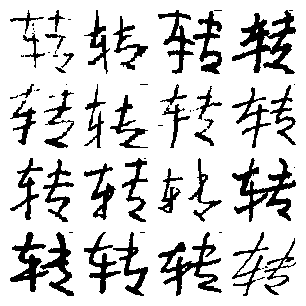 转转转转
转转转转
转转转转
转转转转